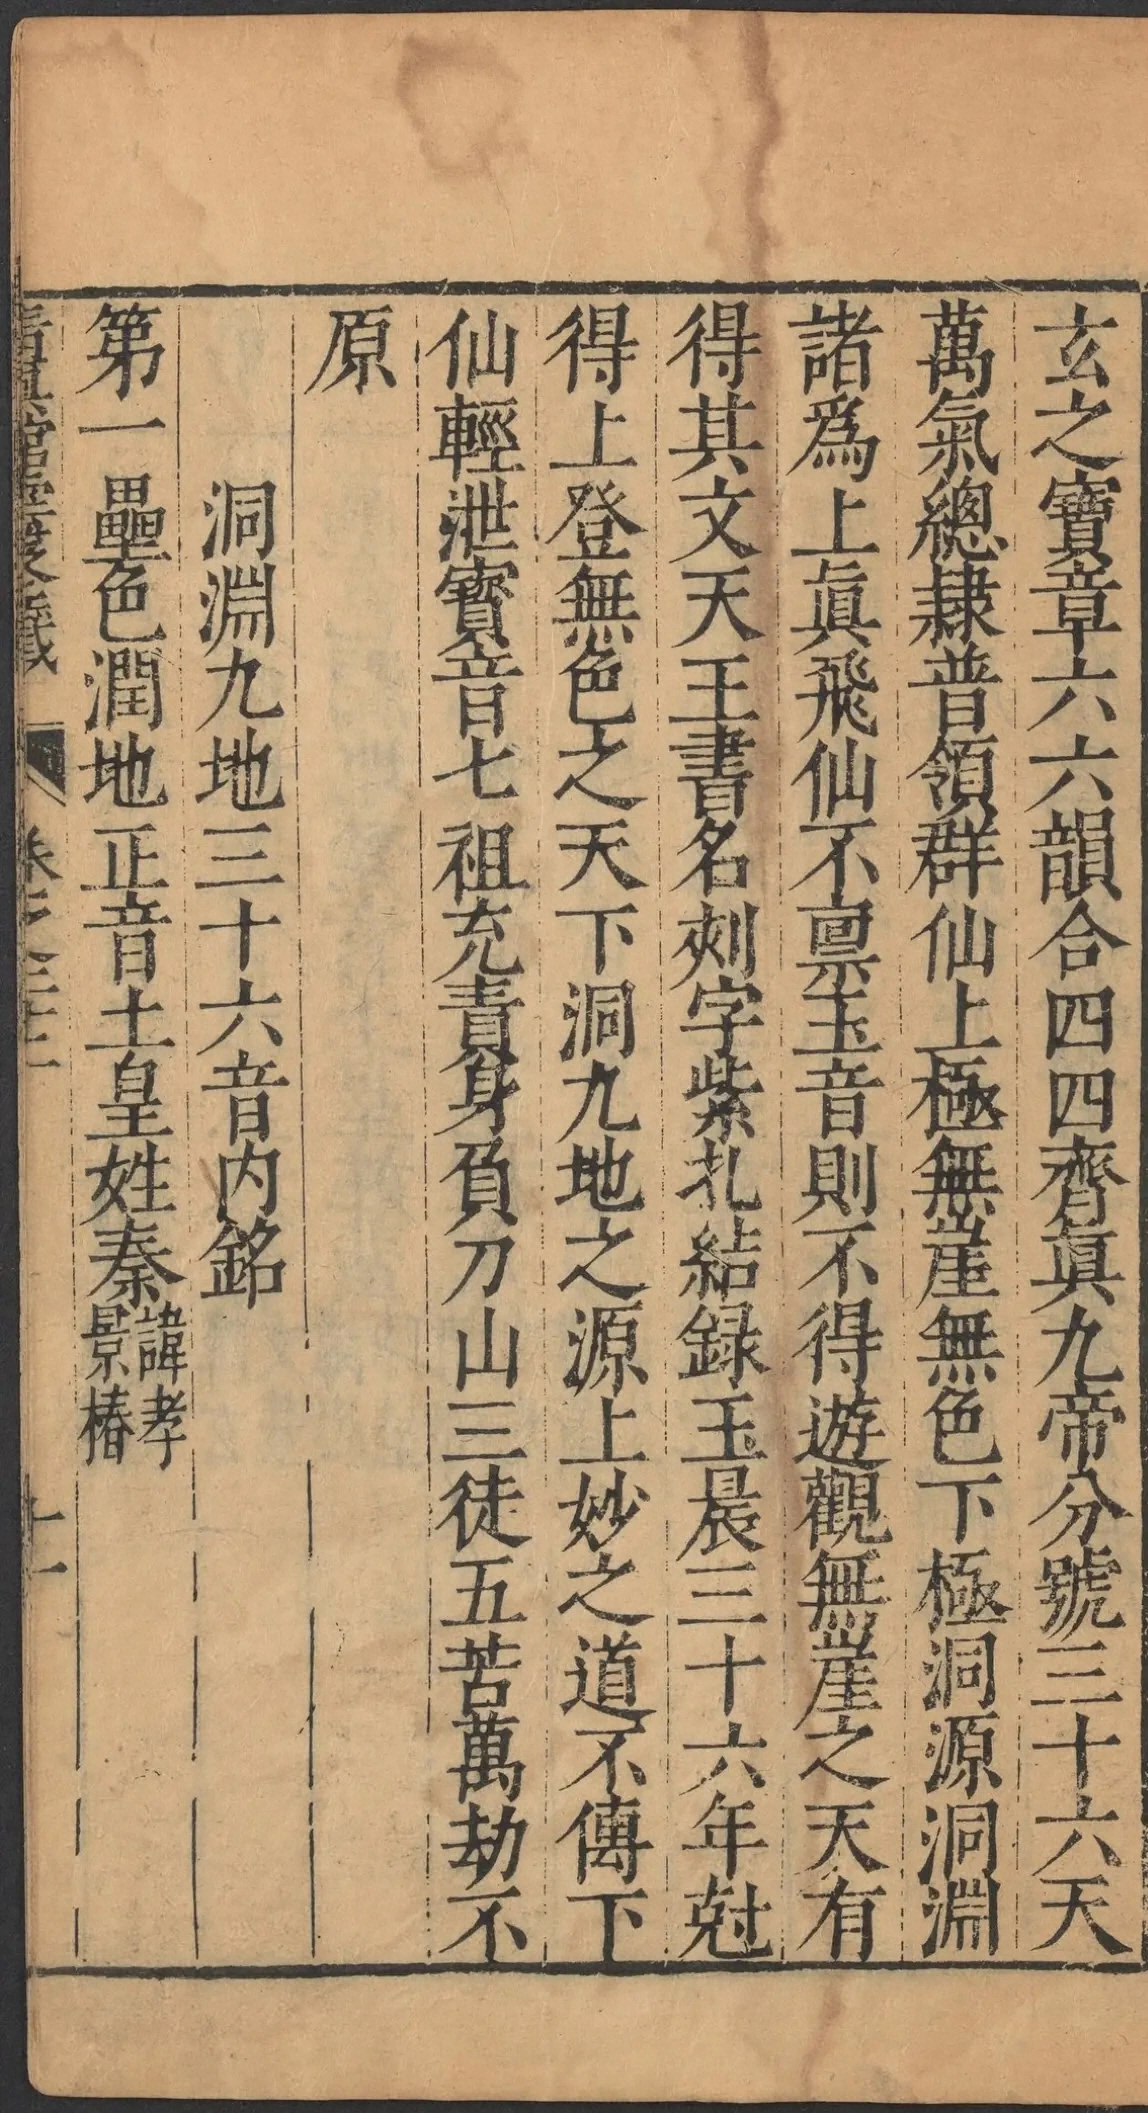 玄之寶章六六韻合四四齊眞九帝分號三十六天
萬氣總隷普領群仙上極無崖無色下極洞源洞淵
諸爲上眞飛仙不禀玉音則不得遊觀無崖之天有
得其文天王書名刻字紫札結録玉晨三十六年尅
得上登無色之天下洞九地之源上妙之道不傳下
仙輕泄寶音七祖充責身負刀山三徒五苦萬劫不
原
洞淵九地三十六音内銘
第一壘色潤地正音土皇姓秦諱孝景椿
十一